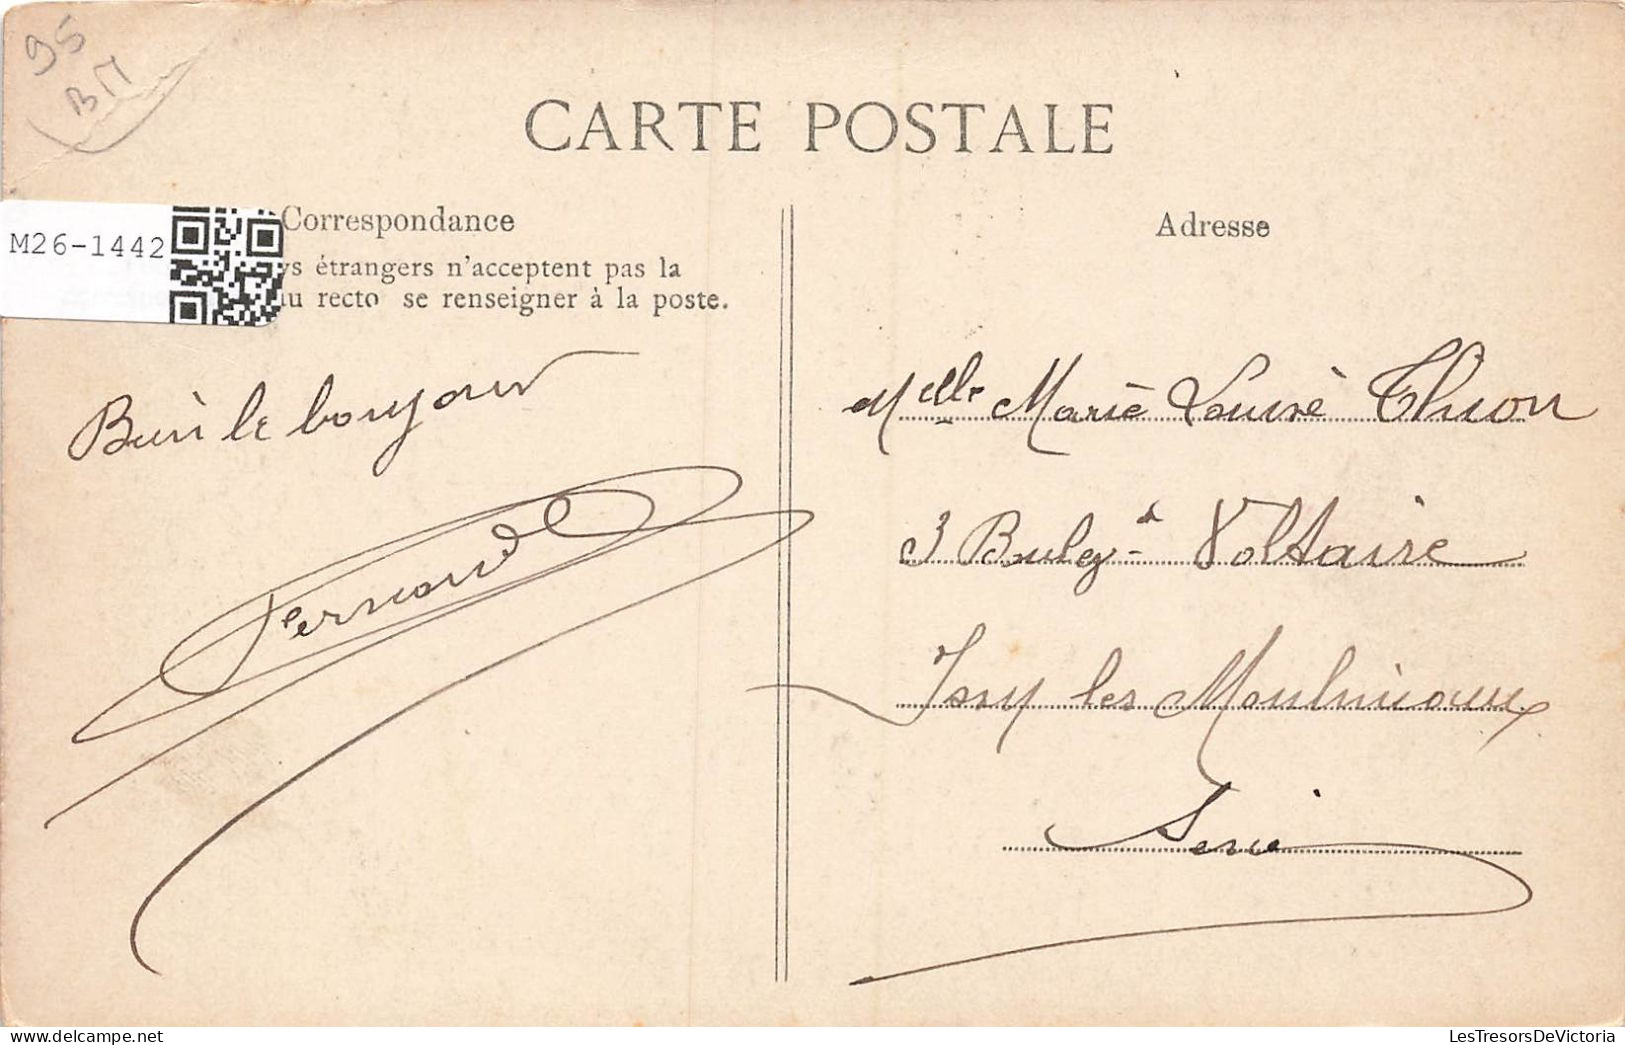 95
BM
CARTE POSTALE
M26-1442
Correspondance
ys étrangers n'acceptent pas la
au recto se renseigner à la poste.
Bien le bonjour
Fernand
Adresse
Melle Marie Louise Thuon
3 Boulevd Voltaire
Issy les Moulineaux
Seine
delcampe.net
LesTresorsDeVictoria